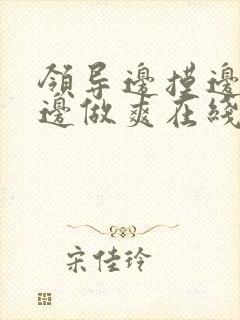 領导邊摸邊
邊做爽在綫
宋佳玲